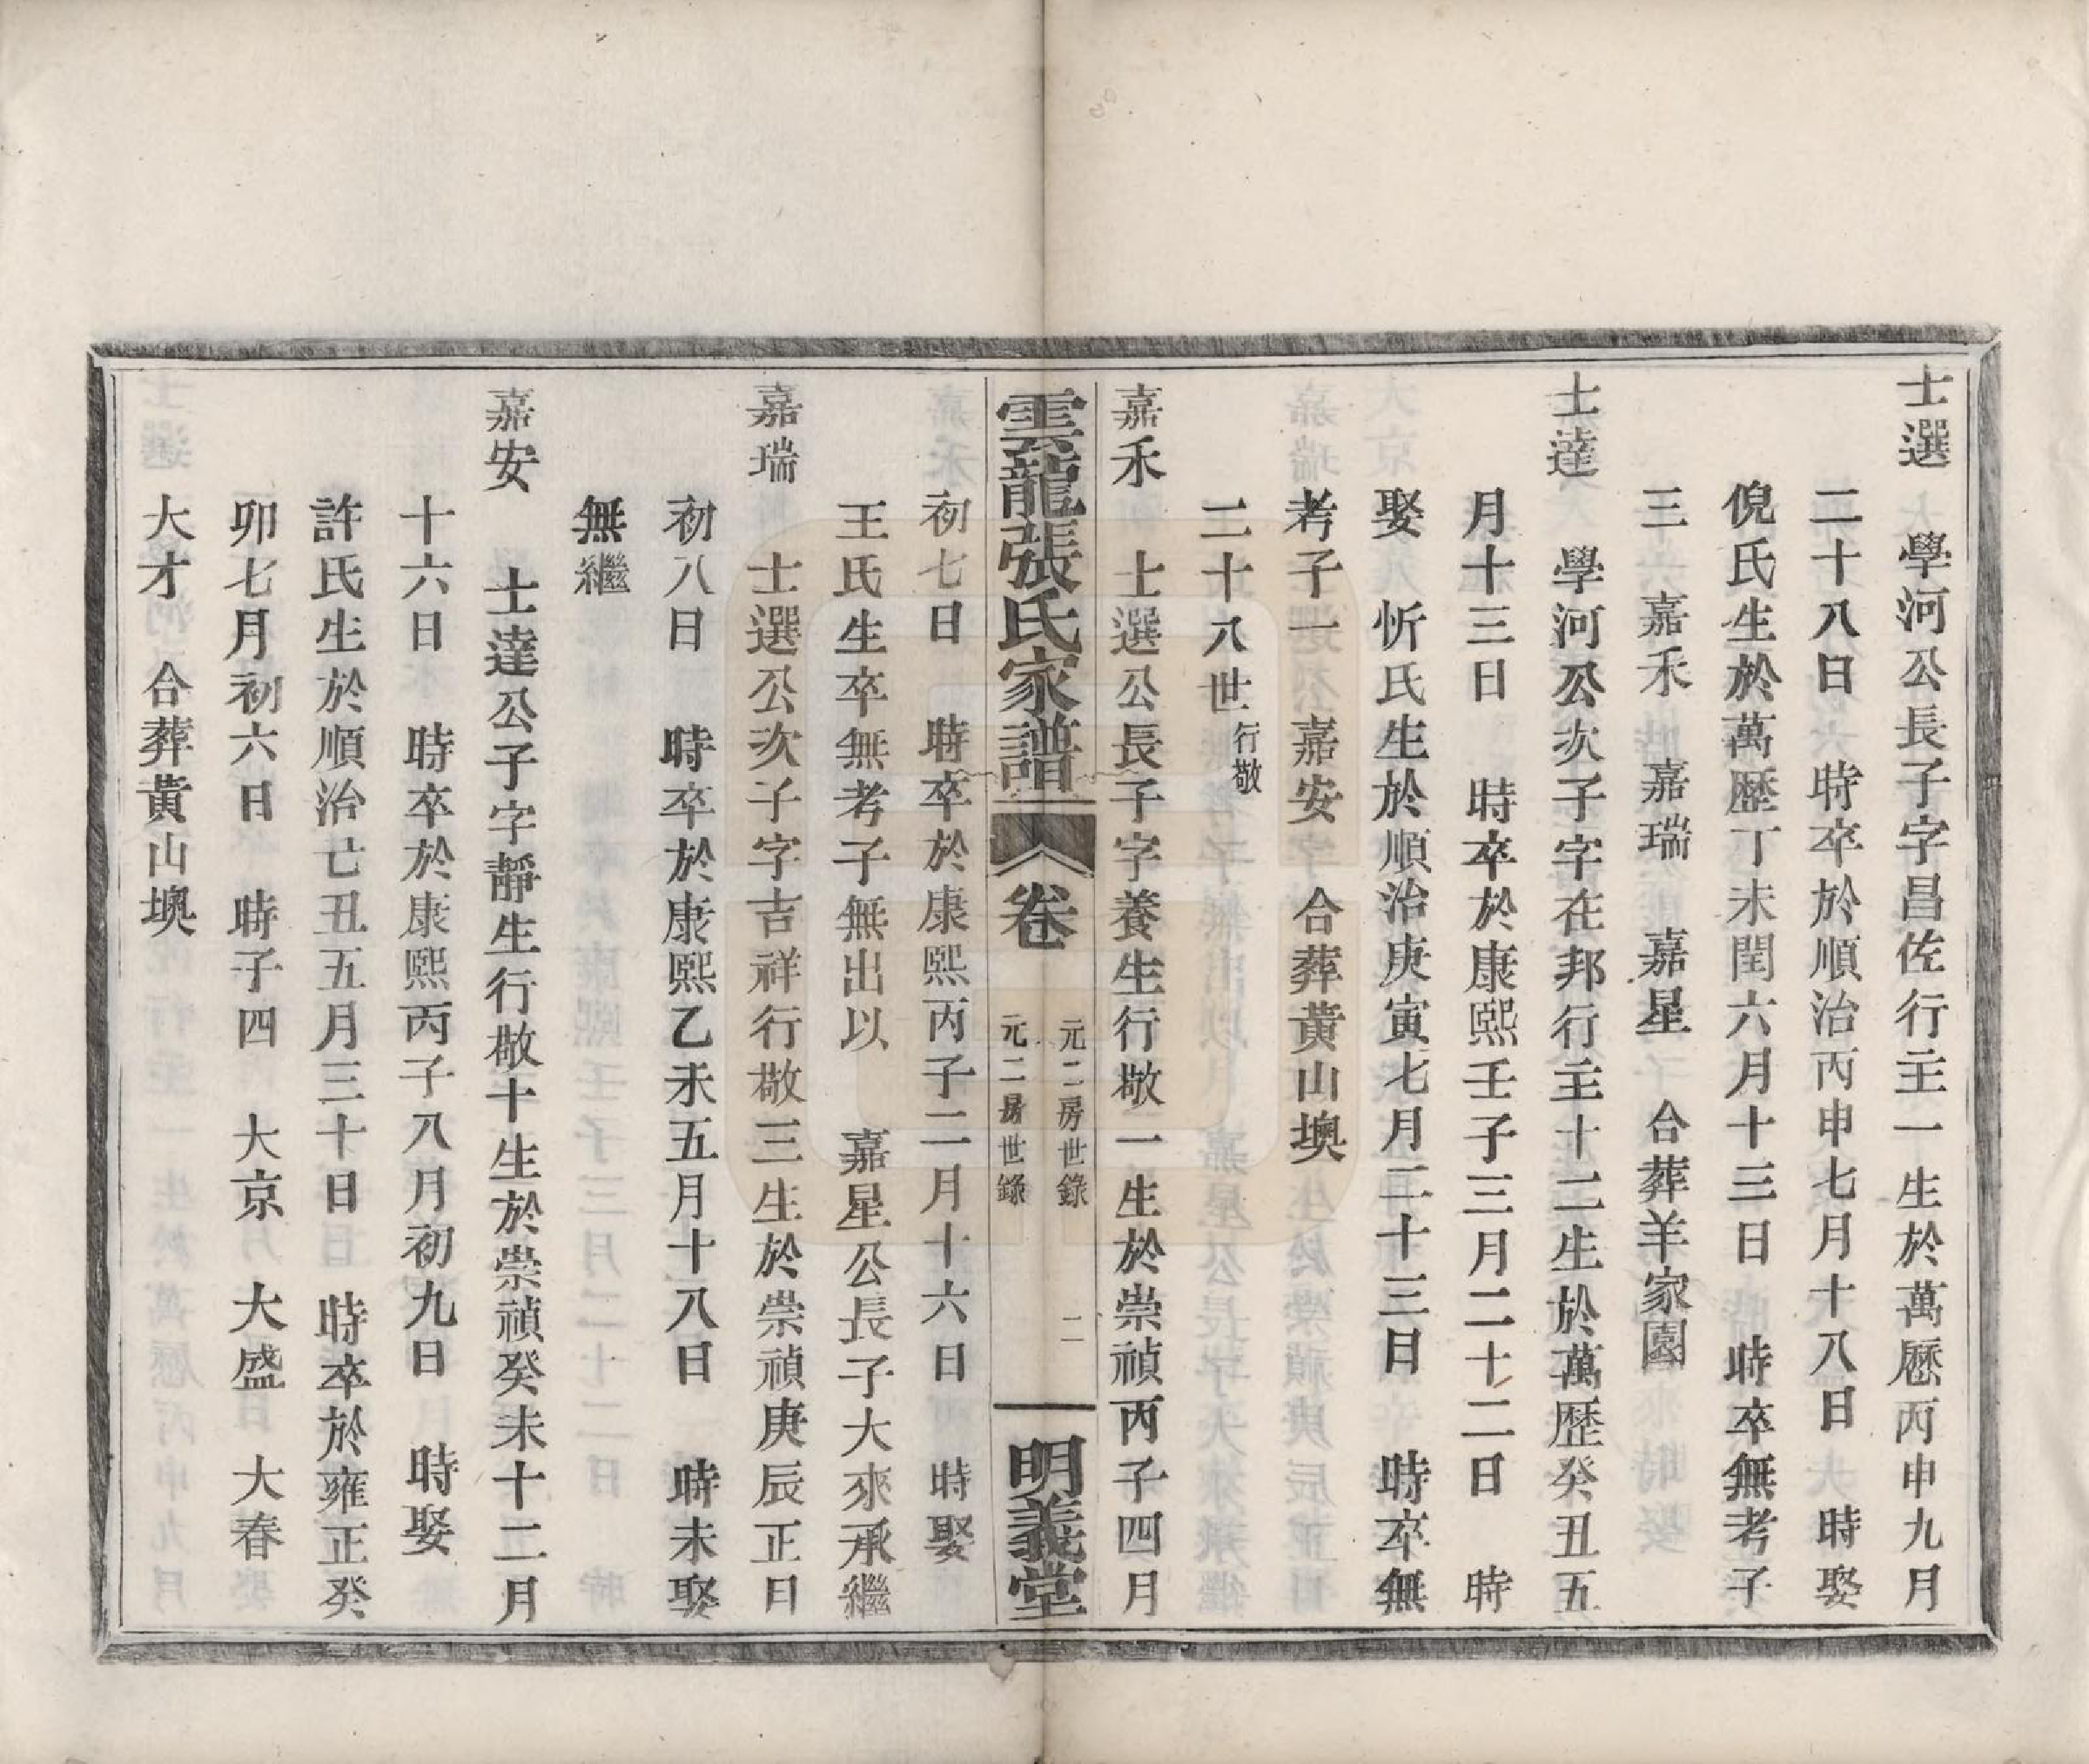 士選　學河公長子字昌佐行主一生於萬歷丙申九月
二十八日　時卒於順治丙申七月十八日　時娶
倪氏生於萬歷丁未閏六月十三日　時卒無考子
三　嘉禾　嘉瑞　嘉星　合葬羊家園
士達　學河公次子字在邦行主十二生於萬歷癸丑五
月十三日　時卒於康熙壬子三月二十二日　時
娶　忻氏生於順治庚寅七月二十三日　時卒無
考子一　嘉安　合葬黃山墺
二十八世行敬
嘉禾　士選公長子字養生行敬一生於崇禎丙子四月
雲龍張氏家譜
卷
元二房世錄
元二房世錄
二
明義堂
初七日　時卒於康熙丙子二月十六日　時娶
王氏生卒無考子無出以　嘉星公長子大來承繼
嘉瑞　士選公次子字吉祥行敬三生於崇禎庚辰正日
初八日　時卒於康熙乙未五月十八日　時未娶
無繼
嘉安　士達公子字靜生行敬十生於崇禎癸未十二月
十六日　時卒於康熙丙子八月初九日　時娶
許氏生於順治亡丑五月三十日　時卒於雍正癸
卯七月初六日　時子四　大京　大盛　大春
大才　合葬黃山墺